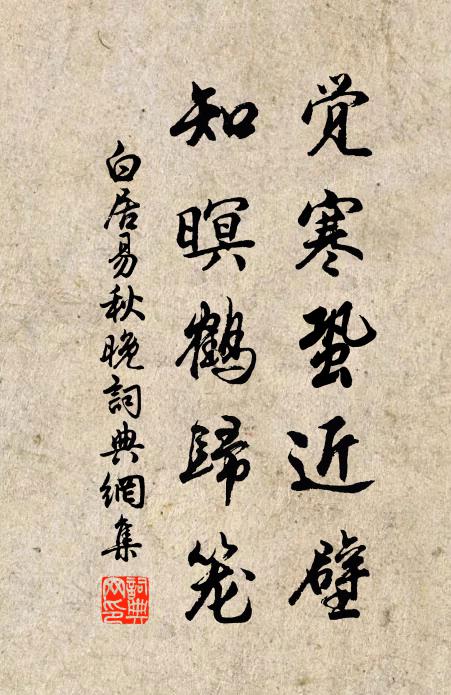 觉寒蛩近壁
知暝鹤歸笼
白居易秋晚詞典網集
詞典网印